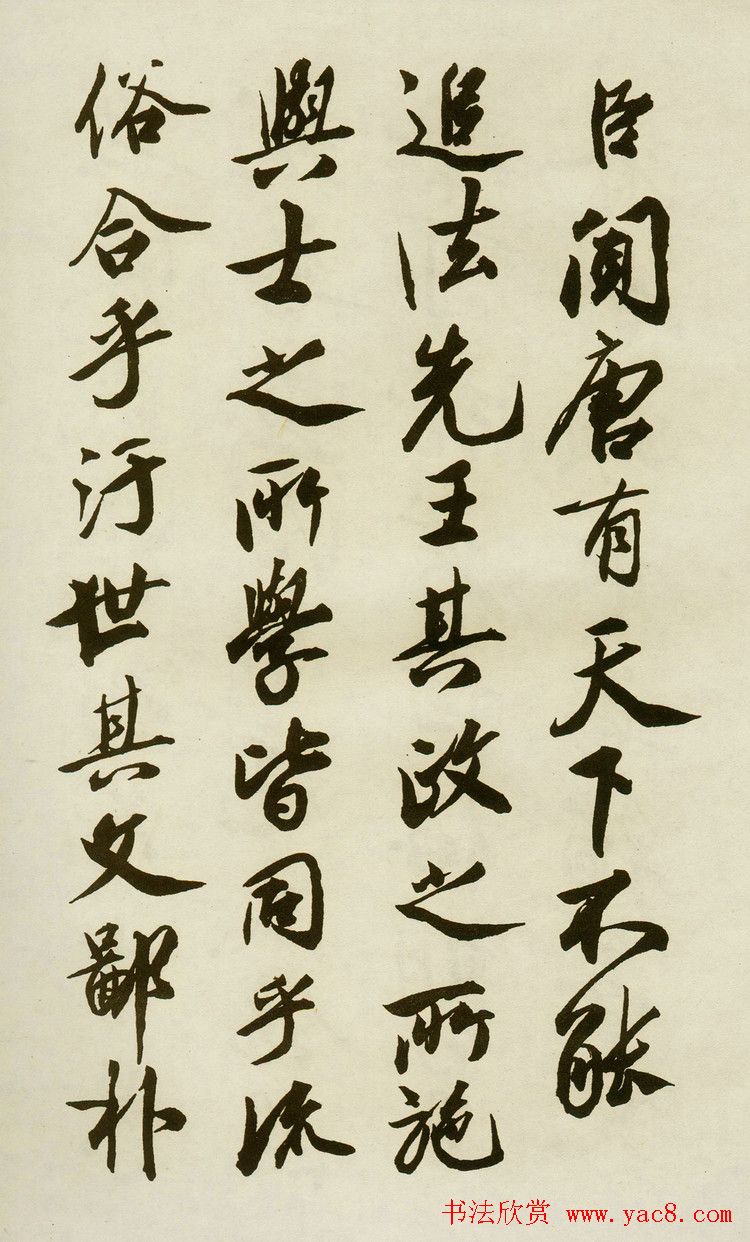 臣聞唐有天下不能
追法先王其政之所施
與士之所學皆同乎流
俗合乎汙世其文鄙朴
书法欣赏 www.yac8.com